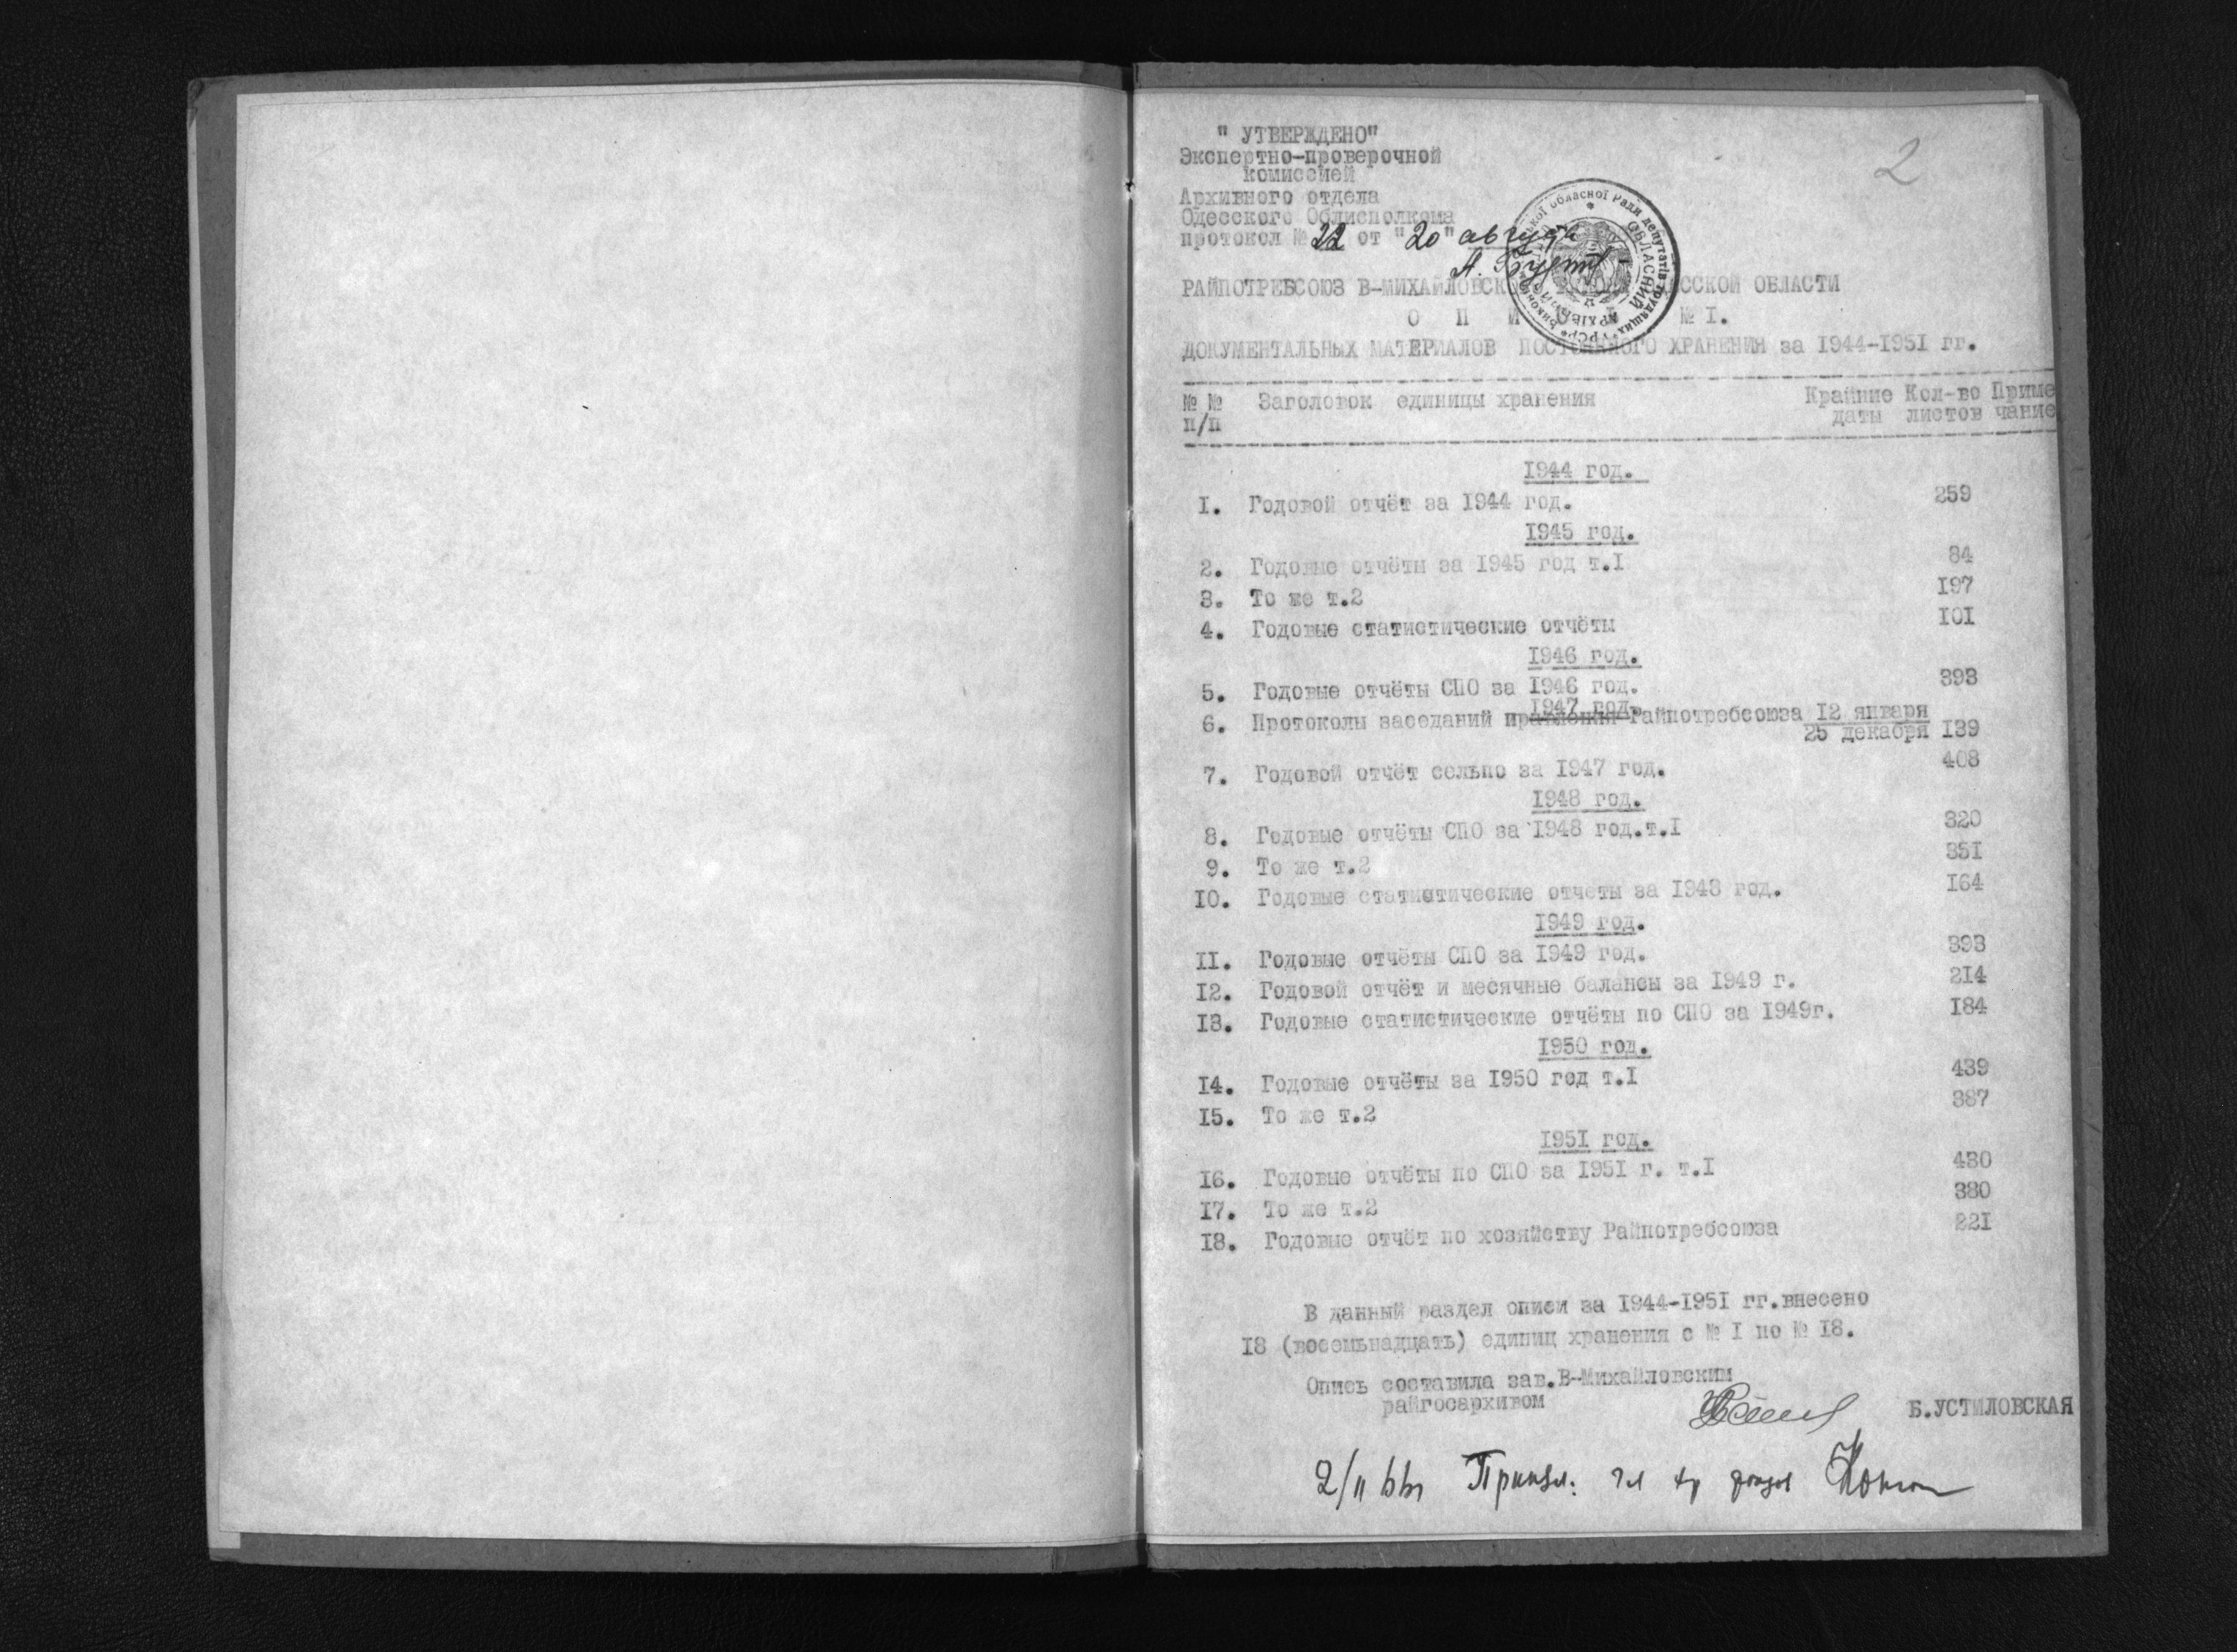 2
" УТВЕРЖДЕНО"
Экспертно-проверочной
комиссией
Архивного отдела
Одесского Облисполкома
протокол № 22 от "20" августа
РАЙПОТРЕБСОЮЗ В-МИХАЙЛОВСКОГО РАЙОНА ОДЕССКОЙ ОБЛАСТИ
О П И С Ь № I.
ДОКУМЕНТАЛЬНЫХ МАТЕРИАЛОВ ПОСТОЯННОГО ХРАНЕНИЯ за 1944-1951 гг.
№ № Заголовок единицы хранения Крайние Кол-во Приме
п/п даты листов чание
1944 год.
I. Годовой отчёт за 1944 год. 259
1945 год.
2. Годовые отчёты за 1945 год т.I 84
3. То же т.2 197
4. Годовые статистические отчёты 101
1946 год.
5. Годовые отчёты СПО за 1946 год. 393
1947 год.
6. Протоколы заседаний правления Райпотребсоюза 12 января
25 декабря 139
7. Годовой отчёт сельпо за 1947 год. 408
1948 год.
8. Годовые отчёты СПО за 1948 год.т.I 320
9. То же т.2 351
10. Годовые статистические отчеты за 1948 год. 164
1949 год.
II. Годовые отчёты СПО за 1949 год. 393
12. Годовой отчёт и месячные балансы за 1949 г. 214
13. Годовые статистические отчёты по СПО за 1949г. 184
1950 год.
14. Годовые отчёты за 1950 год т.I 439
15. То же т.2 387
1951 год.
16. Годовые отчёты по СПО за 1951 г. т.I 430
17. То же т.2 380
18. Годовые отчёт по хозяйству Райпотребсоюза 221
В данный раздел описи за 1944-1951 гг.внесено
18 (восемьнадцать) единиц хранения с № I по № 18.
Опись составила зав.В-Михайловским
райгосархивом Б.УСТИЛОВСКАЯ